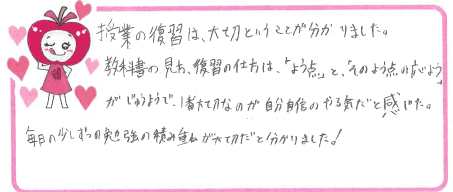 授業の復習は、大切ということが分かりました。
教科書の見方、復習の仕方は、「よう点」と、「そのよう点の応よう」
がじゅうようで、1番大切なのが自分自信のやる気だと感じた。
毎日の少しずつの勉強の積み重ねが大切だと分かりました!